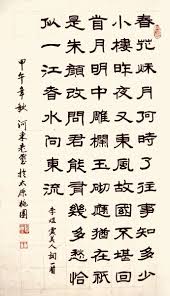 春花秌月何時了往事知多少
小樓昨夜又東風故國不堪回
首月明中雕欄玉砌應猶在只
是朱顏改問君能有幾多愁恰
似一江春水向東流
李煜虞美人詞一首
甲午年秋河東老於太原桃園